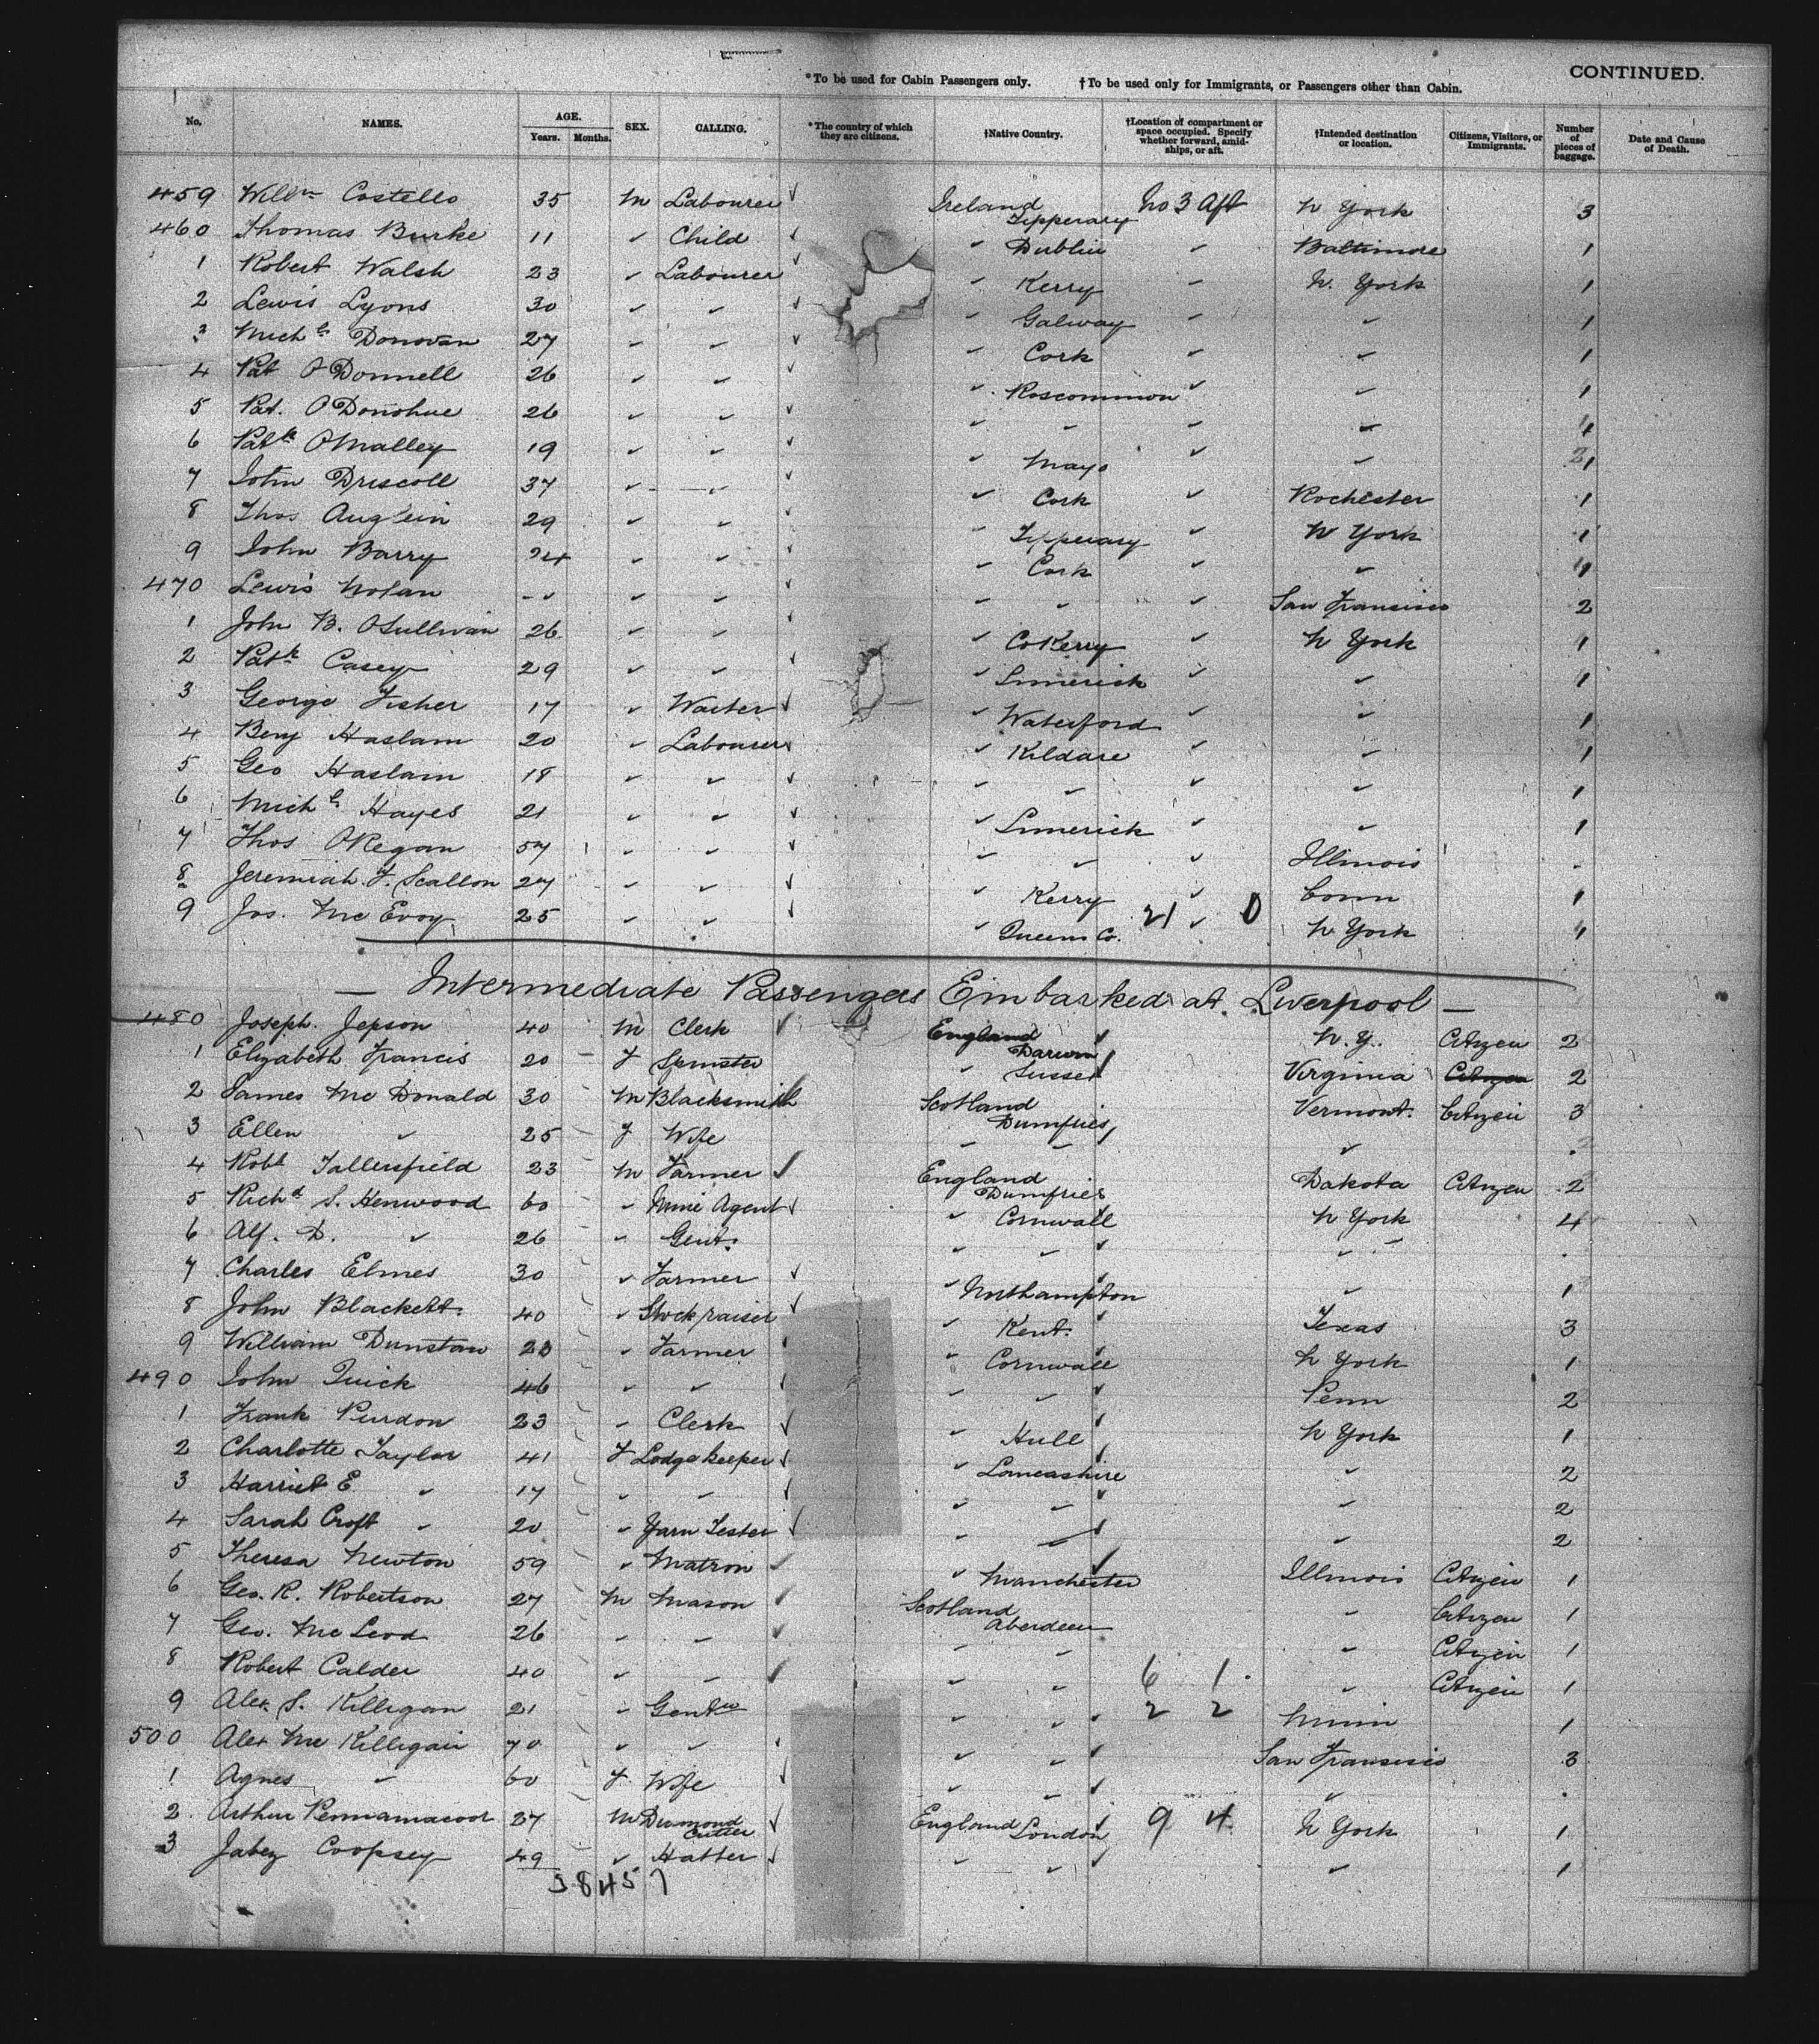 *To be used for Cabin Passengers only. †To be used only for Immigrants, or Passengers other than Cabin. CONTINUED.
No. NAMES. AGE. Years. Months. SEX. CALLING. *The country of which they are citizens. †Native Country. †Location of compartment or space occupied. Specify whether forward, amidships, or aft. †Intended destination or location. Citizens, Visitors, or Immigrants. Number of pieces of baggage. Date and Cause of Death.
459 Willm Costello 35 M Labourer Ireland Tipperary No 3 Aft N York 3
460 Thomas Burke 11 " Child " Dublin " Baltimore 1
1 Robert Walsh 23 " Labourer " Kerry " N. York 1
2 Lewis Lyons 30 " " " Galway " " 1
3 Michl Donovan 27 " " " Cork " " 1
4 Pat O'Donnell 26 " " " Roscommon " " 1
5 Pat. O'Donohue 26 " " " " " "
6 Patk O'Malley 19 " " " Mayo " "
7 John Driscoll 37 " " " Cork " Rochester 1
8 Thos Auglein 29 " " " Tipperary " N York 1
9 John Barry 24 " " " Cork " " 1
470 Lewis Nolan " " " " " " San Fransisco 2
1 John B. O'Sullivan 26 " " " Co Kerry " N York 1
2 Patk Casey 29 " " " Limerick " " 1
3 George Fisher 17 " Waiter " Waterford " " 1
4 Benj Haslam 20 " Labourer " Kildare " " 1
5 Geo Haslam 18 " " " " " " 1
6 Michl Hayes 21 " " " Limerick " " 1
7 Thos O'Regan 57 " " " " " Illinois
8 Jeremiah F. Scallon 27 " " " Kerry " Conn 1
9 Jos. McEvoy 25 " " " Queens Co. 21 " 0 N York 1
— Intermediate Passengers Embarked at Liverpool —
480 Joseph Jepson 40 M Clerk England Darwen N.Y. Citizen 2
1 Elizabeth Francis 20 F Spinster " Sussex Virginia Citizen 2
2 James McDonald 30 M Blacksmith Scotland Dumfries Vermont. Citizen 3
3 Ellen " 25 F Wife " " "
4 Robt Tallersfield 23 M Farmer England Dumfries Dakota Citizen 2
5 Richd S. Henwood 60 " Mine Agent " Cornwall N York 4
6 Alf. D. " 26 " Gent. " " "
7 Charles Elmes 30 " Farmer " Northampton " 1
8 John Blackett 40 " Stock raiser " Kent. Texas 3
9 William Dunstan " Farmer " Cornwall N York 1
490 John Quick 46 " " " " Penn 2
1 Frank Purdon 23 " Clerk " Hull N York 1
2 Charlotte Taylor 41 F Lodge keeper " Lancashire " 2
3 Harriet E " 17 " " " " " 2
4 Sarah Croft " 20 " Yarn Tester " " " 2
5 Theresa Newton 59 " Matron " Manchester Illinois Citizen 1
6 Geo. R. Robertson 27 M Mason Scotland Aberdeen " Citizen 1
7 Geo. McLeod 26 " " " " " Citizen 1
8 Robert Calder 40 " " " " 6 1 " Citizen 1
9 Alex. S. Killigan 21 " Gentn " " 2 2 Minn 1
500 Alex McKilligan 70 " " " " San Fransisco 3
1 Agnes " 60 F Wife " " "
2 Arthur Pennamacoor 27 M Diamond Cutter England London 9 4 N York 1
3 Jabez Coopsey 49 " Hatter " " " 1